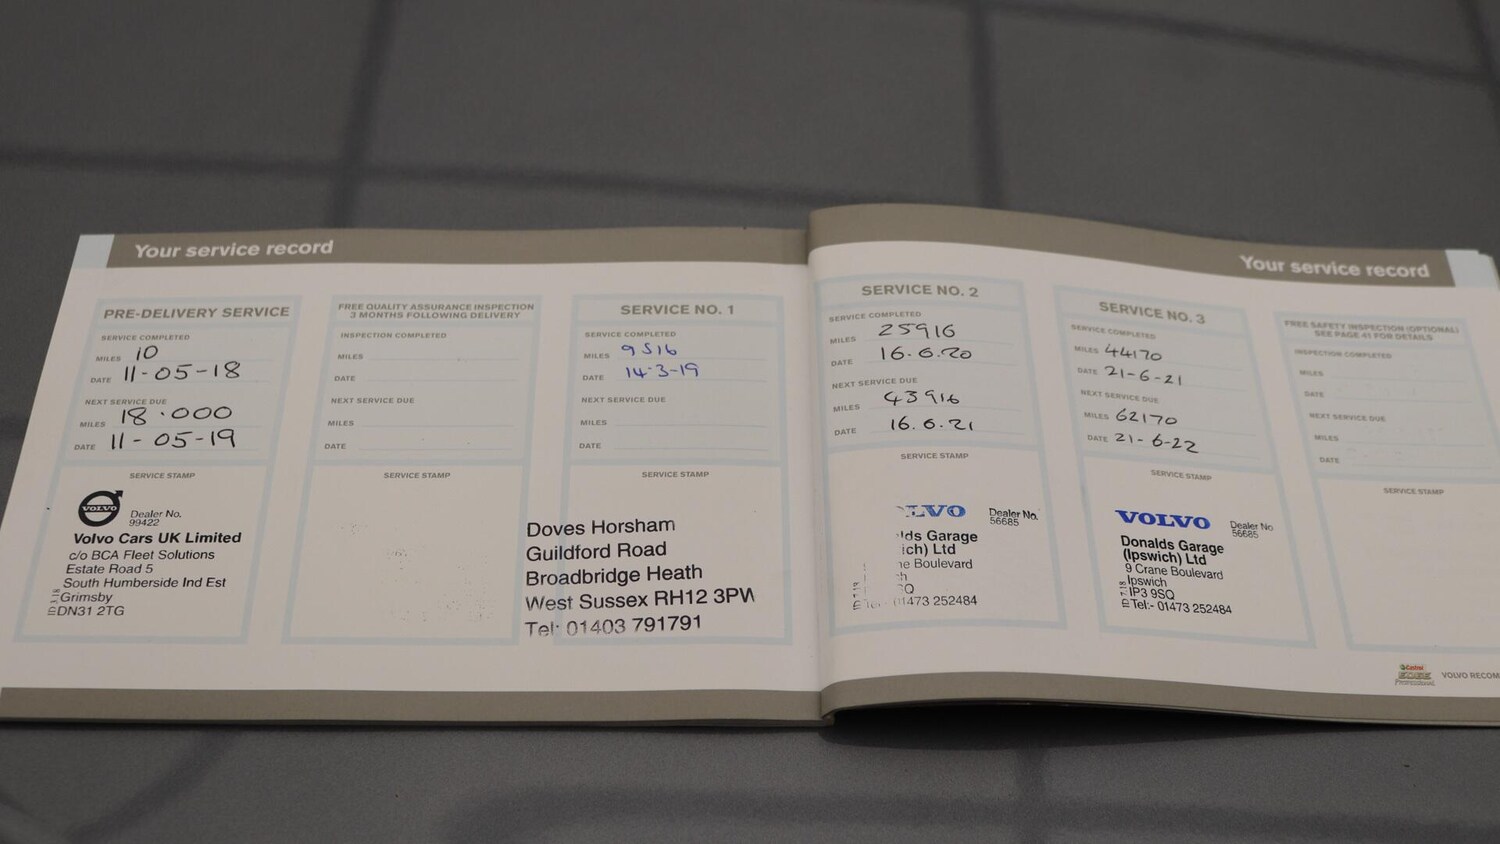 Your service record
PRE-DELIVERY SERVICE
SERVICE COMPLETED
MILES 10
DATE 11-05-18
NEXT SERVICE DUE
MILES 18.000
DATE 11-05-19
SERVICE STAMP
VOLVO
Dealer No.
99422
Volvo Cars UK Limited
c/o BCA Fleet Solutions
Estate Road 5
South Humberside Ind Est
Grimsby
DN31 2TG
FREE QUALITY ASSURANCE INSPECTION
3 MONTHS FOLLOWING DELIVERY
INSPECTION COMPLETED
MILES
DATE
NEXT SERVICE DUE
MILES
DATE
SERVICE STAMP
SERVICE NO. 1
SERVICE COMPLETED
MILES 9516
DATE 14-3-19
NEXT SERVICE DUE
MILES
DATE
SERVICE STAMP
Doves Horsham
Guildford Road
Broadbridge Heath
West Sussex RH12 3PW
Tel: 01403 791791
Your service record
SERVICE NO. 2
SERVICE COMPLETED
MILES 25916
DATE 16.6.20
NEXT SERVICE DUE
MILES 43916
DATE 16.6.21
SERVICE STAMP
LVO
Dealer No.
56685
lds Garage
ich) Ltd
ne Boulevard
ch
SQ
01473 252484
SERVICE NO. 3
SERVICE COMPLETED
MILES 44170
DATE 21-6-21
NEXT SERVICE DUE
MILES 62170
DATE 21-6-22
SERVICE STAMP
VOLVO
Dealer No
56685
Donalds Garage
(Ipswich) Ltd
9 Crane Boulevard
Ipswich
IP3 9SQ
Tel:- 01473 252484
FREE SAFETY INSPECTION (OPTIONAL)
SEE PAGE 41 FOR DETAILS
INSPECTION COMPLETED
MILES
DATE
NEXT SERVICE DUE
MILES
DATE
SERVICE STAMP
Castrol
EDGE
Professional
VOLVO RECOM